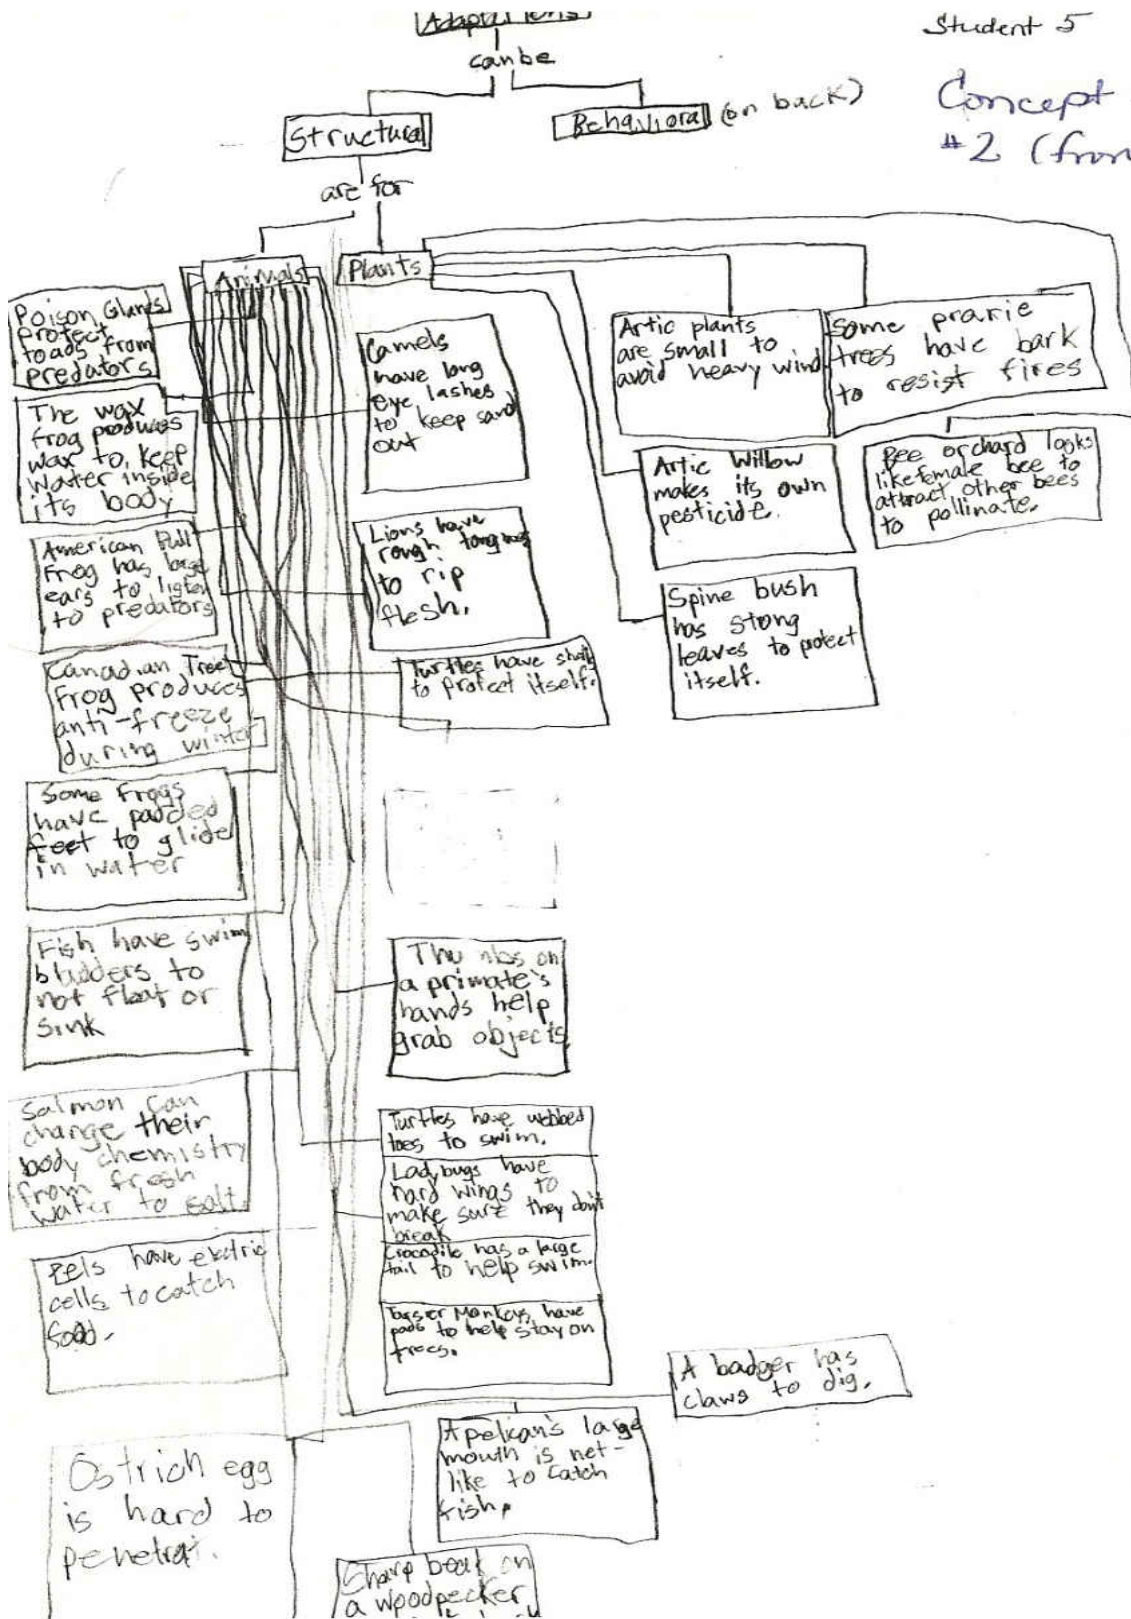 Adaptations
Student 5
can be
Concept
#2 (fron
Structural
Behavioral
(on back)
are for
Animals
Plants
Poison Glands
protect
toads from
predators
The wax
frog produces
wax to keep
water inside
its body
American Bull
Frog has large
ears to listen
to predators
Canadian Tree
Frog produces
anti-freeze
during winter
Some Frogs
have padded
feet to glide
in water
Fish have swim
bladders to
not float or
sink
Salmon can
change their
body chemistry
from fresh
water to salt.
Eels have electric
cells to catch
food.
Ostrich egg
is hard to
Camels
have long
eye lashes
to keep sand
out
Lions have
rough
to rip
flesh.
Turtles have
to protect itself.
on
a primate's
hands help
grab objects
Turtles have webbed
toes to swim.
Ladybugs have
hard wings to
make sure they don't
break
Crocodile has a large
tail to help swim.
Monkeys have
pads to help stay on
trees.
A badger has
claws to dig.
A pelican's large
mouth is net-
like to catch
fish.
Sharp beak on
a woodpecker
Artic plants
are small to
avoid heavy wind.
Some prarie
trees have bark
to resist fires
Artic Willow
makes its own
pesticide.
Bee orchard looks
like female bee to
attract other bees
to pollinate.
Spine bush
has stong
leaves to protect
itself.